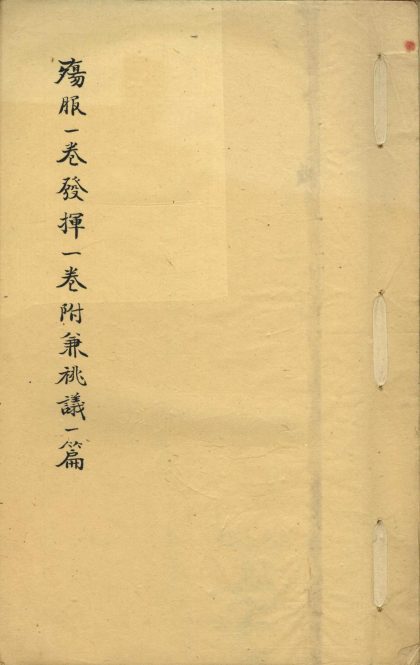 殤服一卷發揮一卷附兼祧議一篇